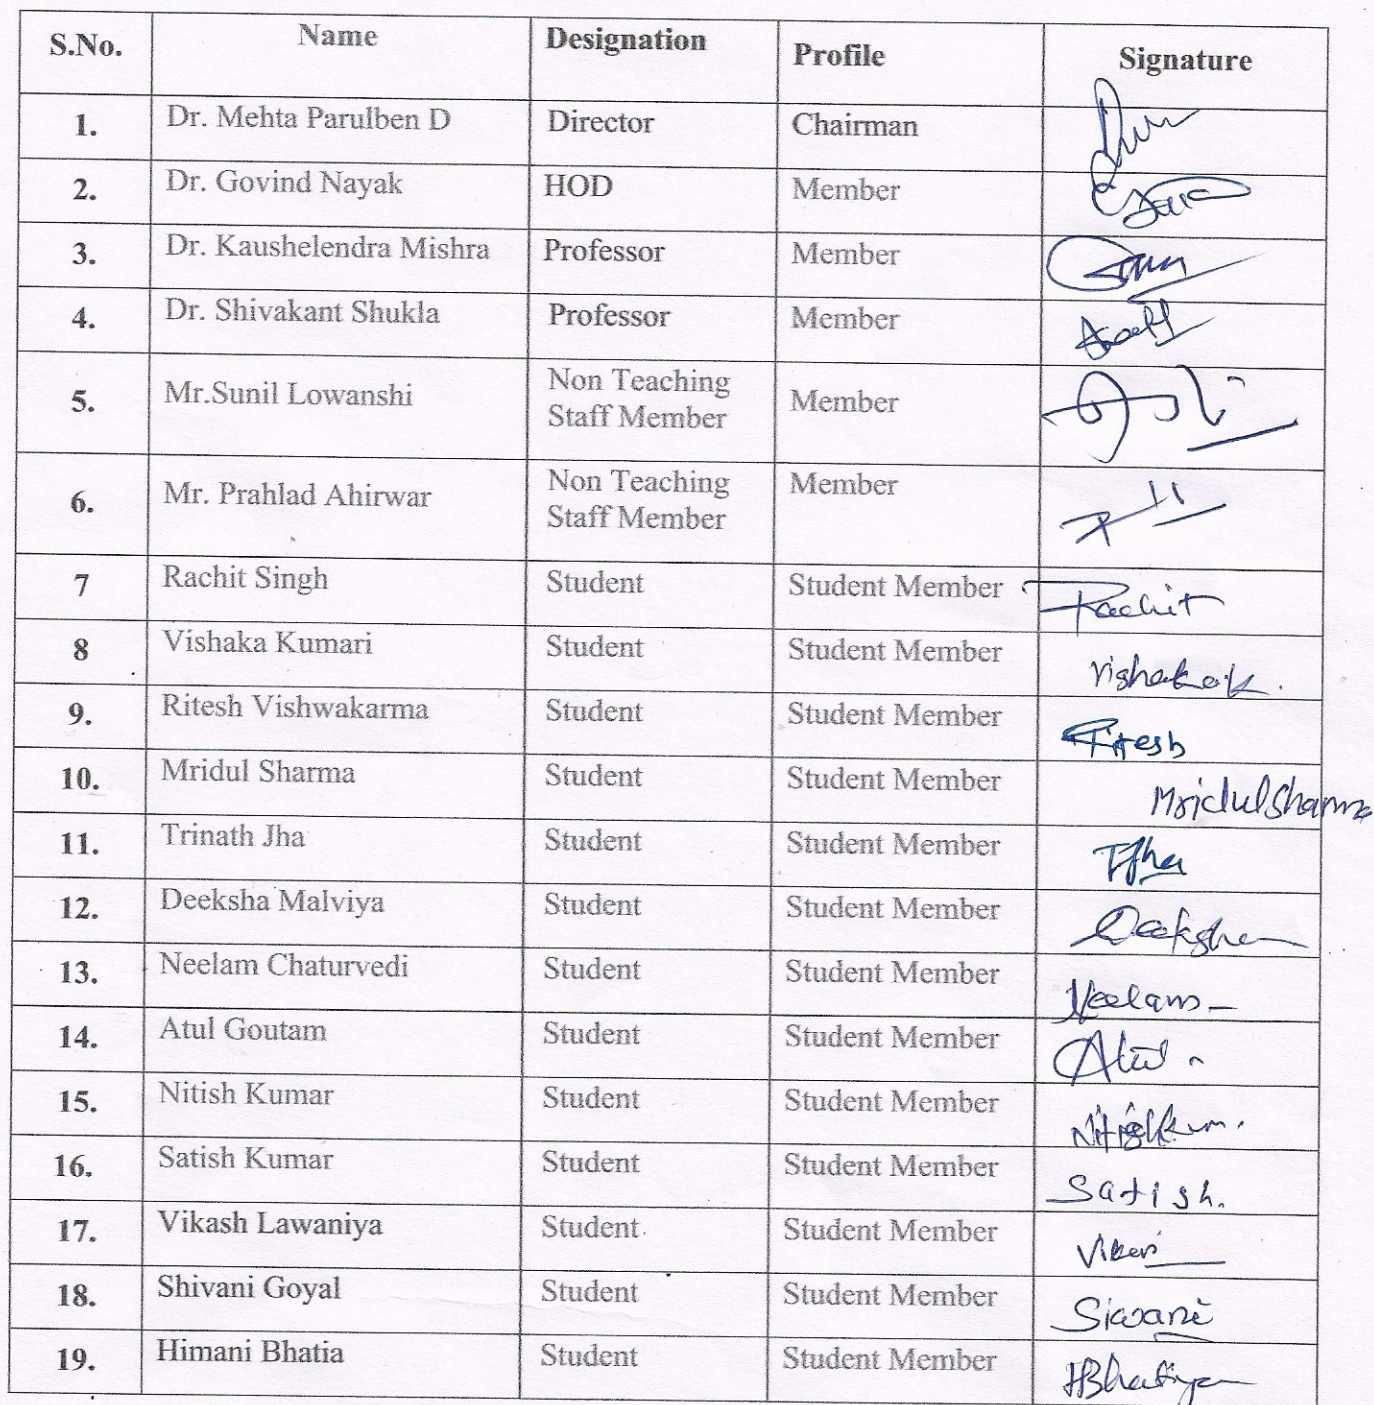 S.No. Name Designation Profile Signature
1. Dr. Mehta Parulben D Director Chairman
2. Dr. Govind Nayak HOD Member
3. Dr. Kaushelendra Mishra Professor Member
4. Dr. Shivakant Shukla Professor Member
5. Mr.Sunil Lowanshi Non Teaching Staff Member Member
6. Mr. Prahlad Ahirwar Non Teaching Staff Member Member
7 Rachit Singh Student Student Member Rachit
8 Vishaka Kumari Student Student Member Vishakak.
9. Ritesh Vishwakarma Student Student Member Ritesh
10. Mridul Sharma Student Student Member Mridul Sharma
11. Trinath Jha Student Student Member TJha
12. Deeksha Malviya Student Student Member Deeksha
13. Neelam Chaturvedi Student Student Member Neelam
14. Atul Goutam Student Student Member Atul
15. Nitish Kumar Student Student Member Nitish Kum.
16. Satish Kumar Student Student Member Satish.
17. Vikash Lawaniya Student Student Member
18. Shivani Goyal Student Student Member Siwani
19. Himani Bhatia Student Student Member HBhatiya